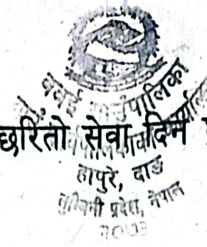 बबई गाउँपालिका
छरितो सेवा दिन
हापुरे, दाङ
लुम्बिनी प्रदेश, नेपाल
२०७३